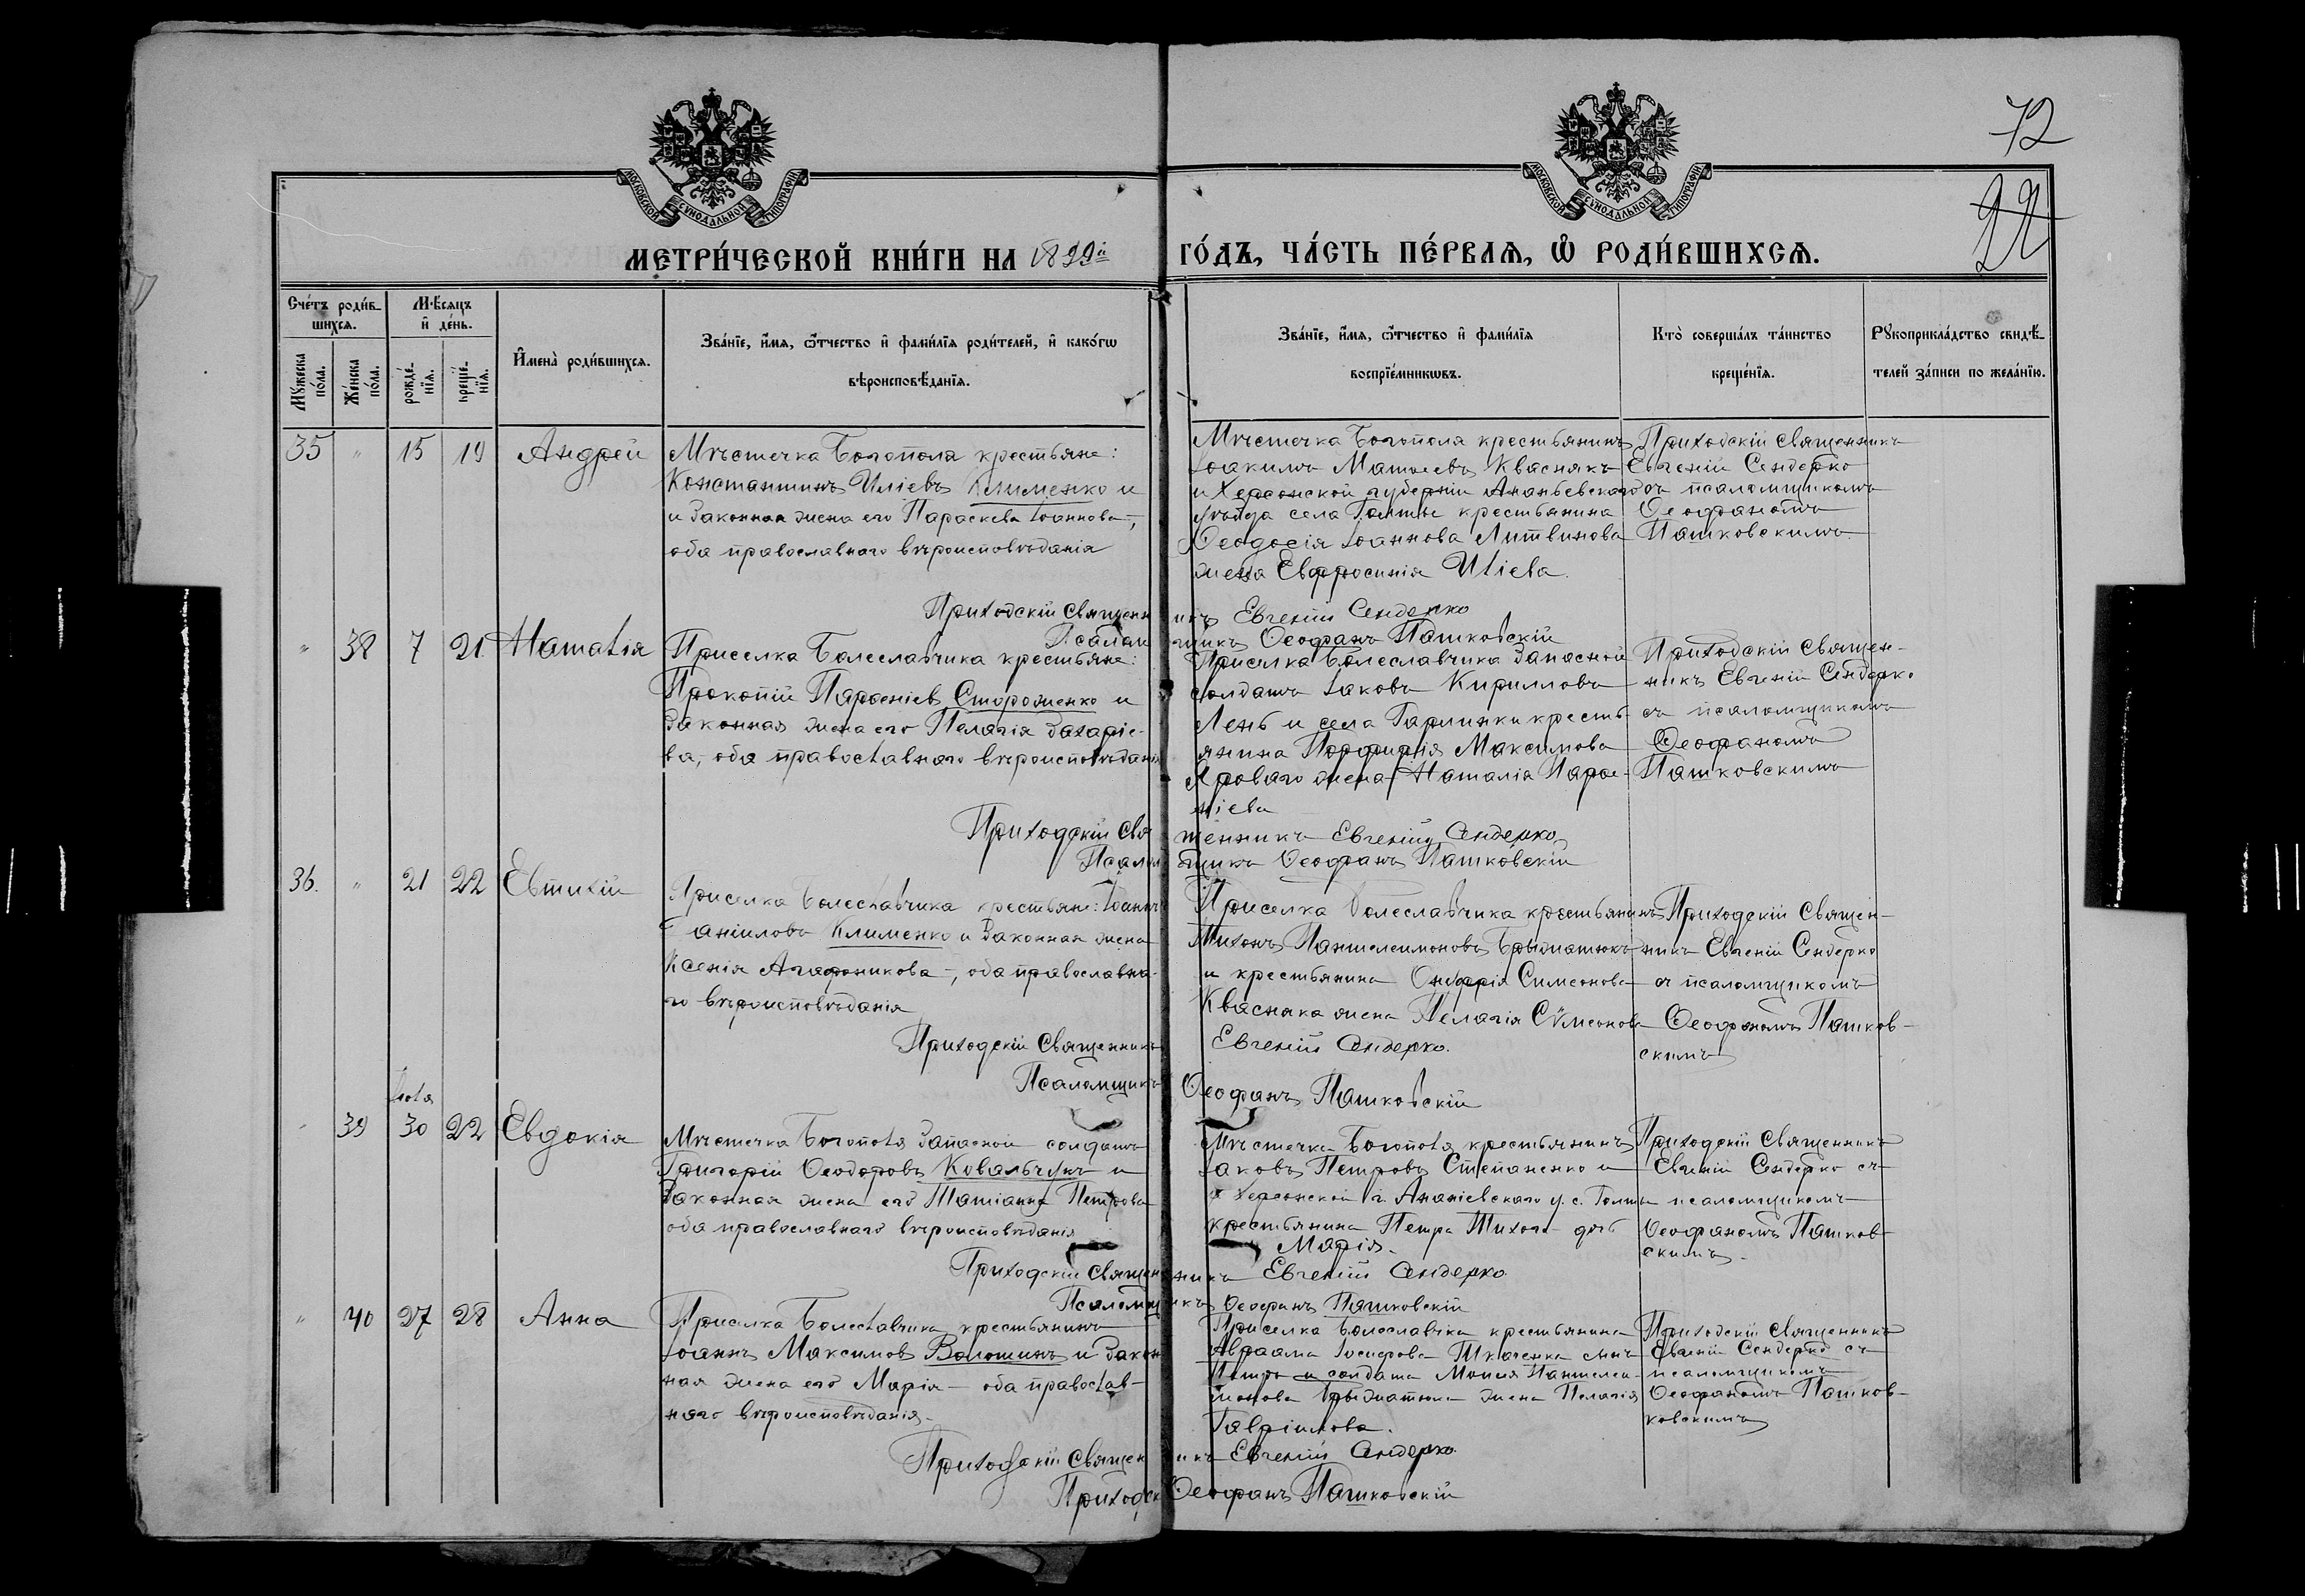 72
22
МОСКОВСКОЙ СУНОДАЛЬНОЙ ТИПОГРАФІИ
МОСКОВСКОЙ СУНОДАЛЬНОЙ ТИПОГРАФІИ
МЕТРИ́ЧЕСКОЙ КНИ́ГИ НА 1899й ГО́ДЪ, ЧА́СТЬ ПЕ́РВАѦ, Ѽ РОДИ́ВШИХСѦ.
Сче́тъ роди́в-
шихсѧ.
Мꙋ́жеска по́ла.
Же́нска по́ла.
М҄ѣсѧцъ
и҆ де́нь.
рожде́-
нїѧ.
креще́-
нїѧ.
И҆мена̀ роди́вшихсѧ.
Зва́нїе, и҆́мѧ, ѻ҆́тчество и҆ фами́лїѧ роди́телей, и҆ како́гѡ
вѣроисповѣ́данїѧ.
Зва́нїе, и҆́мѧ, ѻ҆́тчество и҆ фами́лїѧ
воспрїе́мникѡвъ.
Кто̀ соверша́лъ та́инство
креще́нїѧ.
Рꙋкоприкла́дство свидѣ́-
телей за́писи по жела́нїю.
35 " 15 19 Андрей
Мѣстечка Богополя крестьяне:
Константинъ Иліевъ Клименко и
и законная жена его Параскева Іоаннова-,
оба православнаго вѣроисповѣданія
Мѣстечка Богополя крестьянинъ
Іоакимъ Матѳеевъ Кваснякъ
и Херсонской губерніи Ананьевскаго
уѣзда села Голты крестьянина
Ѳеодосія Іоаннова Литвинова
жена Евфросинія Иліева.
Приходскій священникъ
Евгеній Сендерко
съ псаломщикомъ
Ѳеофаномъ
Пашковскимъ.
Приходскій священникъ Евгеній Сендерко
Псаломщикъ Ѳеофанъ Пашковскій
" 38 7 21 Наталія
Приселка Болеславчика крестьяне:
Прокопій Парѳеніев Стороженко и
законная жена его Пелагія Захаріе-
ва, оба православнаго вѣроисповѣданія
Приселка Болеславчика запасной
солдатъ Іаковъ Кирилловъ
Лень и села крестъ-
янина Порфирія Максимова
Яроваго жена Наталія Парѳе-
ніева
Приходскій священ-
никъ Евгеній Сендерко
съ псаломщикомъ
Ѳеофаномъ
Пашковскимъ
Приходскій священникъ Евгеній Сендерко
Псаломщикъ Ѳеофанъ Пашковскій
36. " 21 22 Евтихій
Приселка Болеславчика крестьяне: Іоаннъ
Даніиловъ Клименко и законная жена
Ксенія Агафоникова-, оба православна-
го вѣроисповѣданія
Приселка Болеславчика крестьянинъ
Тихонъ Пантелеимоновъ
и крестьянина Онуфрія Симеонова
Квасняка жена Пелагія Сѵмеонова
Приходскій священ-
никъ Евгеній Сендерко
съ псаломщикомъ
Ѳеофаномъ Пашков-
скимъ
Приходскій священникъ Евгеній Сендерко.
Псаломщикъ Ѳеофанъ Пашковскій
39 30 22 Евдокія
Мѣстечка Богополя запасной солдатъ
Григорій Ѳеодоровъ Ковальчукъ и
законная жена его Татіанна Петрова
оба православнаго вѣроисповѣданія
Мѣстечка Богополя крестьянинъ
Іаковъ Петровъ Степаненко и
Херсонской г. Ананіевскаго у. с. Голты
крестьянина Петра дочь
Марія.
Приходскій священникъ
Евгеній Сендерко съ
псаломщикомъ
Ѳеофаномъ Пашков-
скимъ.
Приходскій священникъ Евгеній Сендерко
Псаломщикъ Ѳеофанъ Пашковскій
" 40 27 28 Анна
Приселка Болеславчика крестьянинъ
Іоаннъ Максимов Волошинъ и закон-
ная жена его Марія- оба православ-
наго вѣроисповѣданія.
Приселка Болеславчика крестьянина
Авраама Іосифова Ткаченка сынъ
Петръ и солдата Моисея Пантелеи-
монова жена Пелагія
Гавріилова.
Приходскій священникъ
Евгеній Сендерко съ
псаломщикомъ
Ѳеофаномъ Пашков-
ковскимъ
Приходскій священникъ Евгеній Сендерко.
Приходск Ѳеофанъ Пашковскій